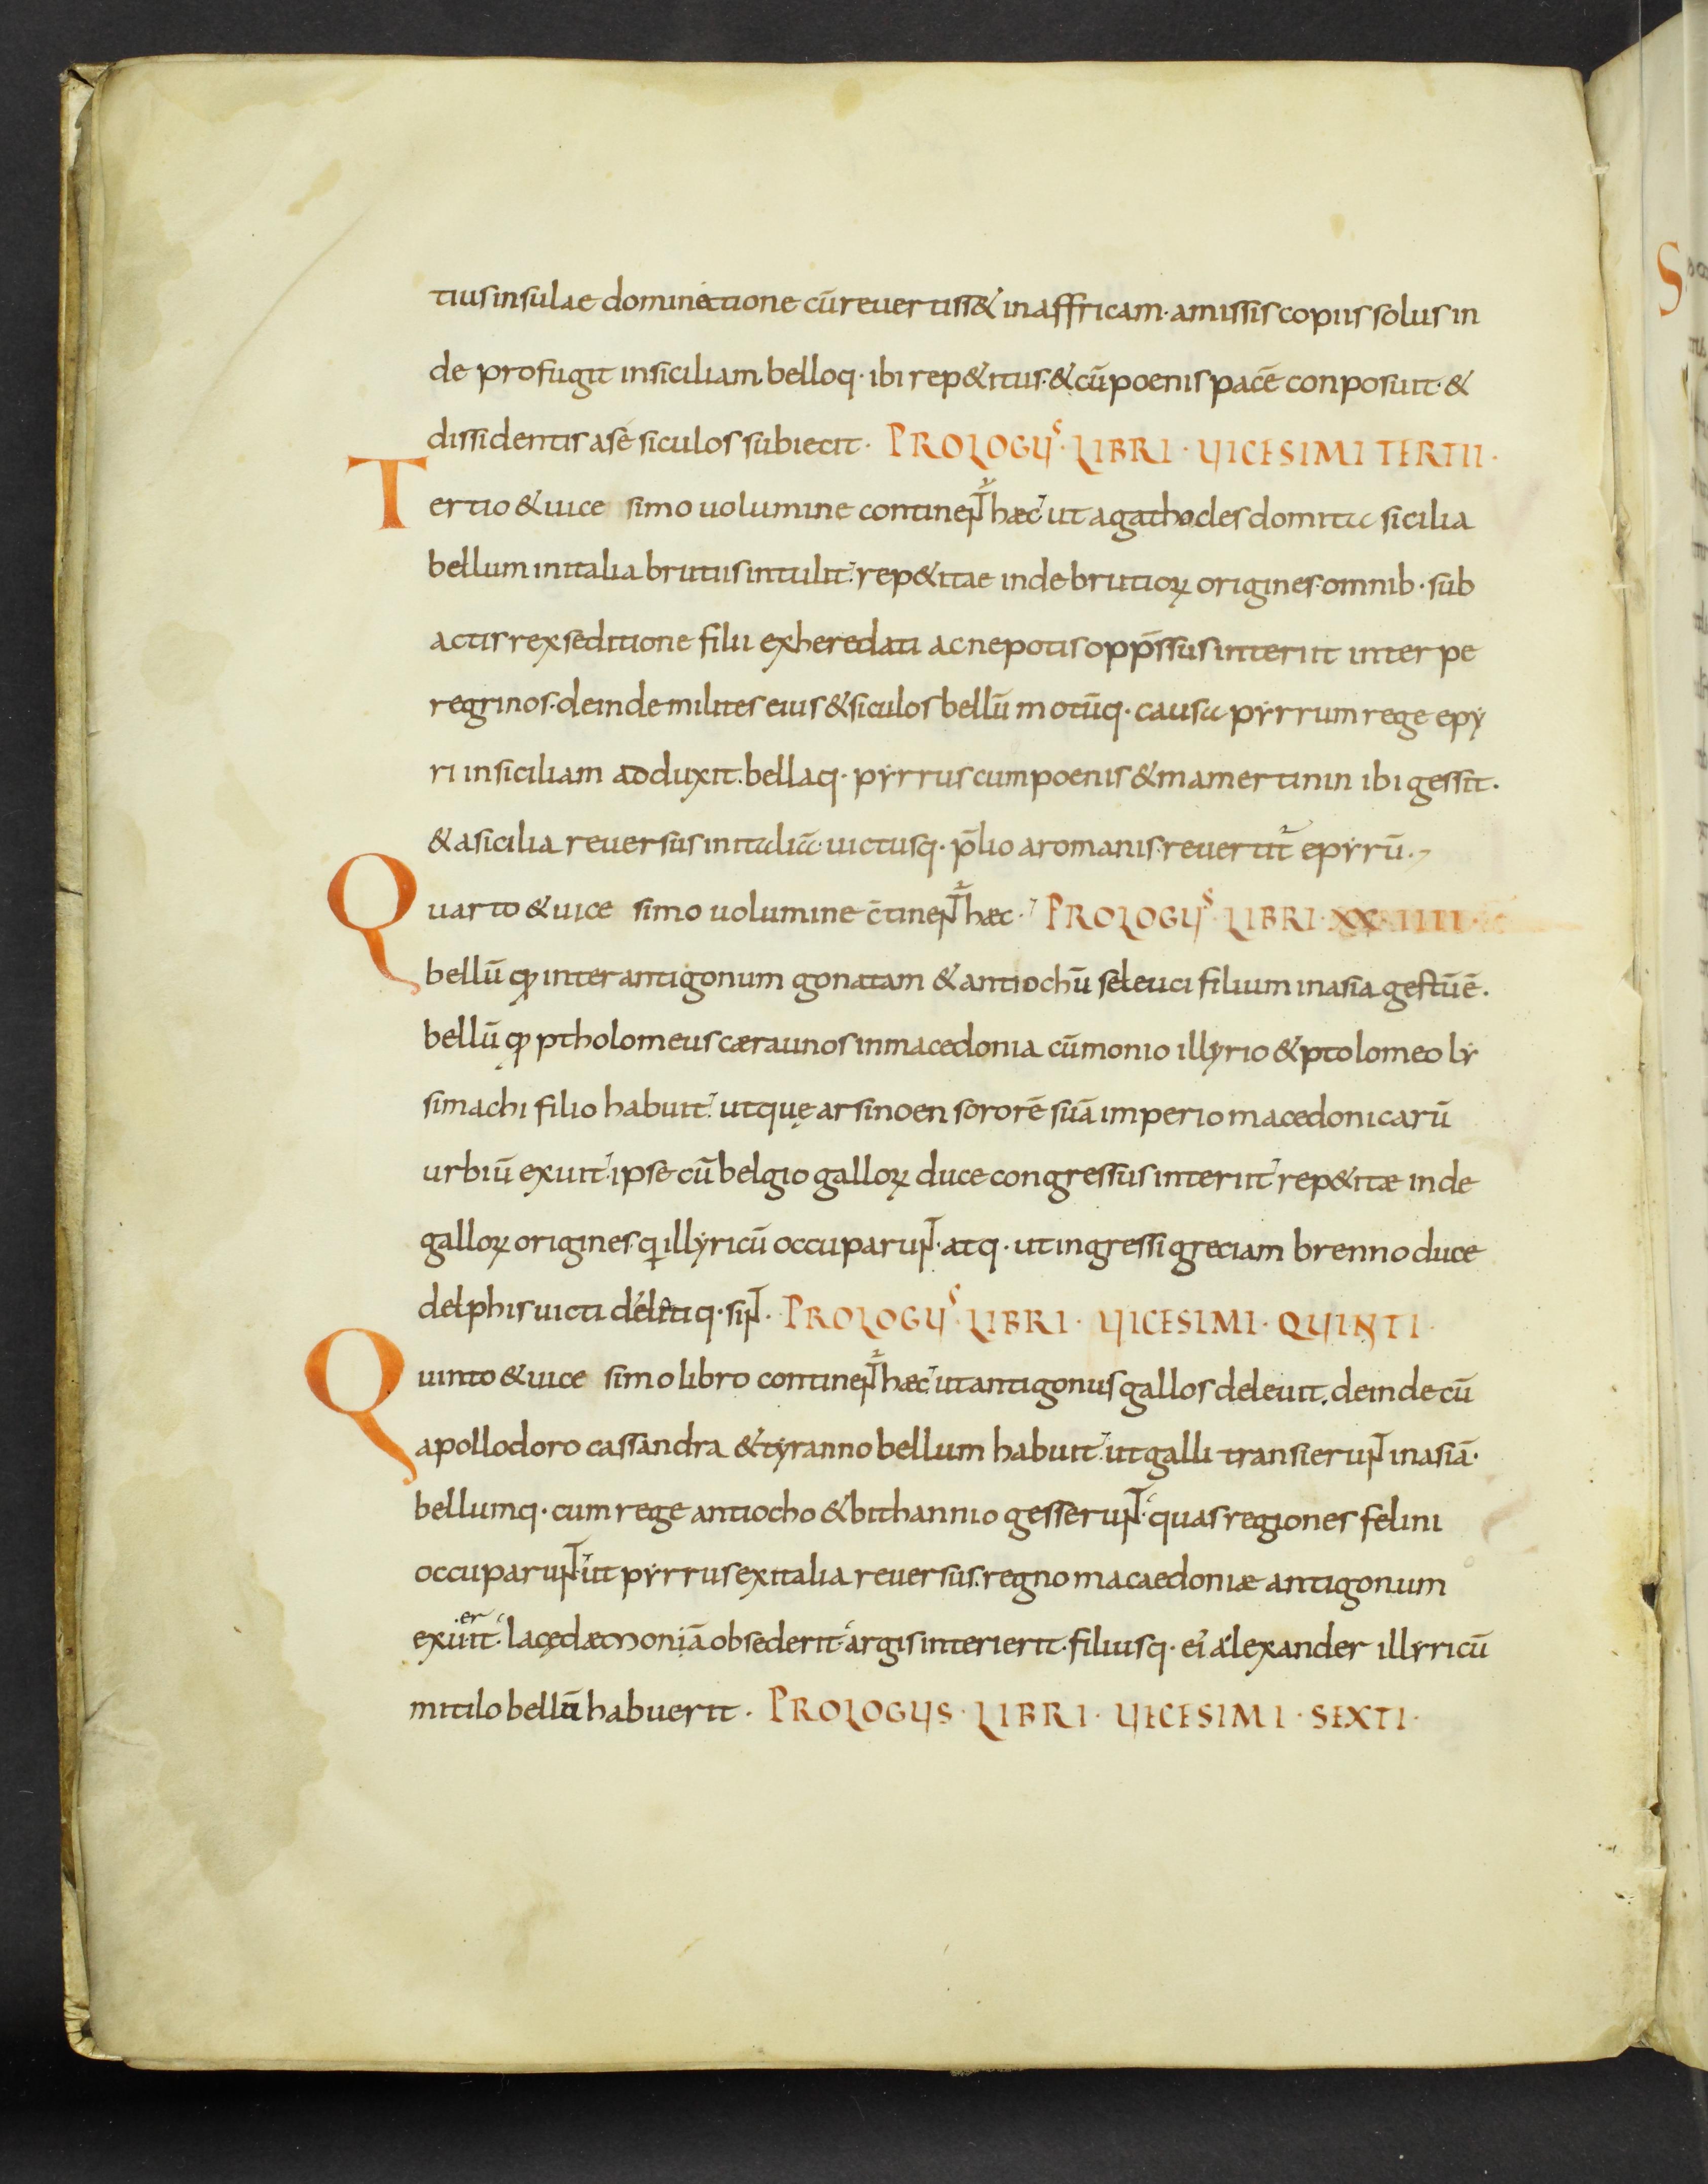 tius insulae dominatione cū reuertiss& in affricam · amissis copiis solus in
de profugit in siciliam belloq · ibi rep&itus · & cū poenis pacē conposuit · &
dissidentis a se siculos subiecit · PROLOGUS · LIBRI · UICESIMI TERTII ·
Tertio & uice simo uolumine continenť hæc ut agathocles domita sicilia
bellum in italia brutiis intulit · rep&itae inde brutioꝝ origines · omnib · sub
actis rex seditione filii exheredati ac nepotis opp̄ssus interiit inter pe
regrinos · deinde milites eius & siculos bellū motūq · causa pẏrrum rege epẏ
ri in siciliam adduxit · bellaq · pẏrrus cum poenis & mamertinin ibi gessit ·
& a sicilia reuersus in italiā · uictusq · p̄lio a romanis · reuertit᷑ epẏrū ·
Quarto & uice simo uolumine c̄tinenť hæc · PROLOGUS · LIBRI · XX IIII ·
bellū qd̵ inter antigonum gonatam & antiochū seleuci filium in asia gestū ē ·
bellū qd̵ ptholomeus cæraunos in macedonia cū monio illẏrio & ptolomeo lẏ
simachi filio habuit · utque arsinoen sororē suā imperio macedonicarū
urbiū exuit · ipse cū belgio galloꝝ duce congressus interiit rep&itæ inde
galloꝝ origines · q illẏricū occuparunt · atq · ut ingressi greciam brenno duce
delphis uicti deletiq · sint · PROLOGUS · LIBRI · UICESIMI · QUINTI ·
Quinto & uice simo libro continenť hæc ut antigonus gallos deleuit · deinde cū
apollodoro cassandra & tẏranno bellum habuit · ut galli transierunt in asiā ·
bellumq · cum rege antiocho & bithannio gesserunt · quas regiones felini
occuparunt · ut pẏrrus ex italia reuersus · regno macaedoniæ antigonum
exuerit · lacedæmoniā obsederit · argis interierit · filiusq · ei᾽ alexander illẏricū
mitilo bellū habuerit · PROLOGUS · LIBRI · UICESIMI · SEXTI ·